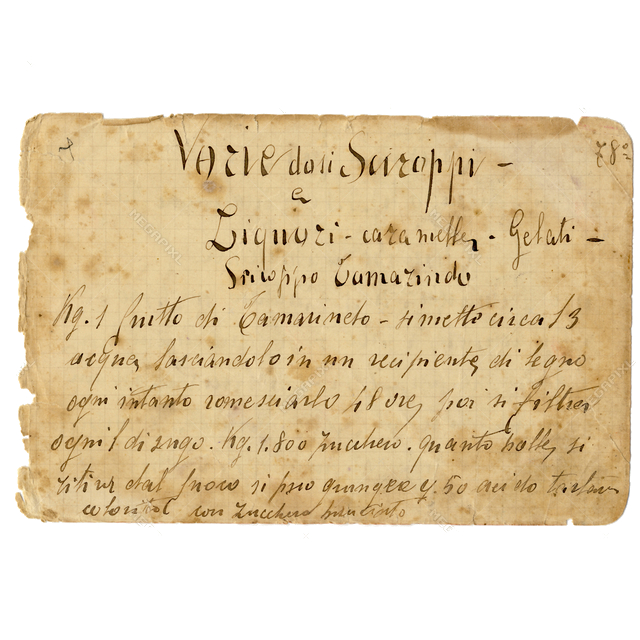 78°
Varie dosi Sciroppi -
e
Liquori - caramelle - Gelati -
Sciroppo Tamarindo
Kg. 1 frutto di Tamarindo - si mette circa 13
acqua lasciandolo in un recipiente di legno
ogni intanto romesciarlo 48 ore poi si filtra
ogni l di sugo. Kg. 1.800 zucchero. quanto bolle si
ritira dal fuoco si può 50 acido
con zucchero